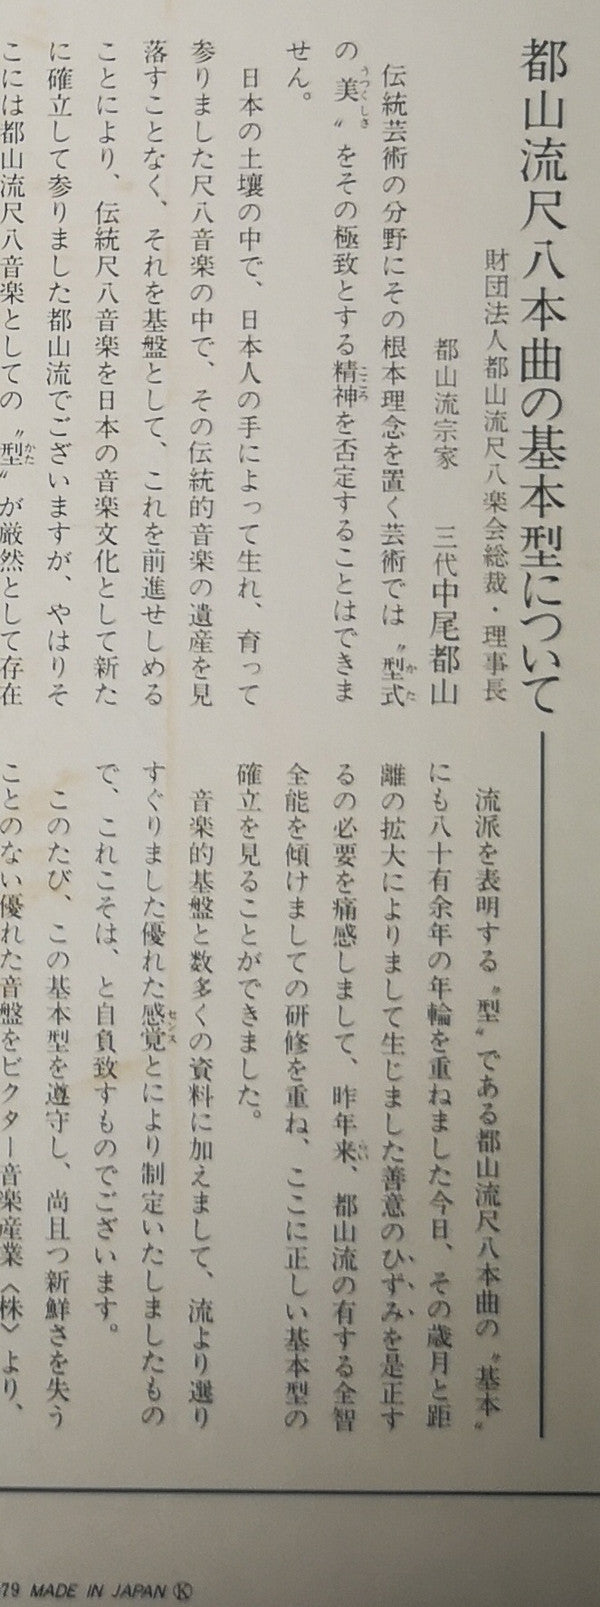 都山流尺八本曲の基本型について
財団法人都山流尺八楽会総裁・理事長
都山流宗家　三代中尾都山
伝統芸術の分野にその根本理念を置く芸術では〝型式〟
の〝美〟をその極致とする精神を否定することはできま
せん。
日本の土壌の中で、日本人の手によって生れ、育って
参りました尺八音楽の中で、その伝統的音楽の遺産を見
落すことなく、それを基盤として、これを前進せしめる
ことにより、伝統尺八音楽を日本の音楽文化として新た
に確立して参りました都山流でございますが、やはりそ
こには都山流尺八音楽としての〝型〟が厳然として存在
流派を表明する〝型〟である都山流尺八本曲の〝基本〟
にも八十有余年の年輪を重ねました今日、その歳月と距
離の拡大によりまして生じました善意のひずみを是正す
るの必要を痛感しまして、昨年来、都山流の有する全智
全能を傾けましての研修を重ね、ここに正しい基本型の
確立を見ることができました。
音楽的基盤と数多くの資料に加えまして、流より選り
すぐりました優れた感覚とにより制定いたしましたもの
で、これこそは、と自負致すものでございます。
このたび、この基本型を遵守し、尚且つ新鮮さを失う
ことのない優れた音盤をビクター音楽産業〈株〉より、
79 MADE IN JAPAN Ⓚ